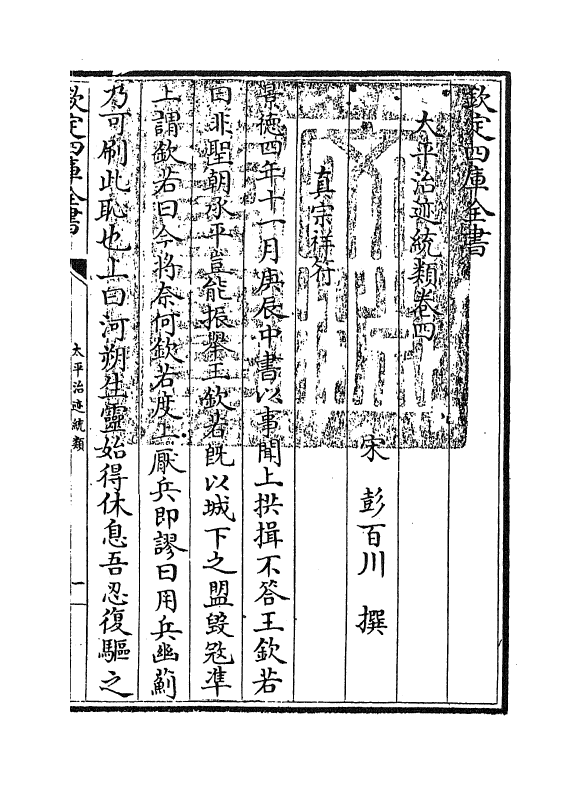 欽定四庫全書
太平治迹統類卷四
宋 彭百川 撰
真宗祥符
景德四年十一月庚辰中書以事聞上拱揖不答王欽若
曰非聖朝承平豈能振舉王欽若既以城下之盟毀冦準
上謂欽若曰今將奈何欽若度上厭兵即謬曰用兵幽薊
乃可刷此恥也上曰河朔生靈始得休息吾忍復驅之
欽定四庫全書
太平治迹統類
一